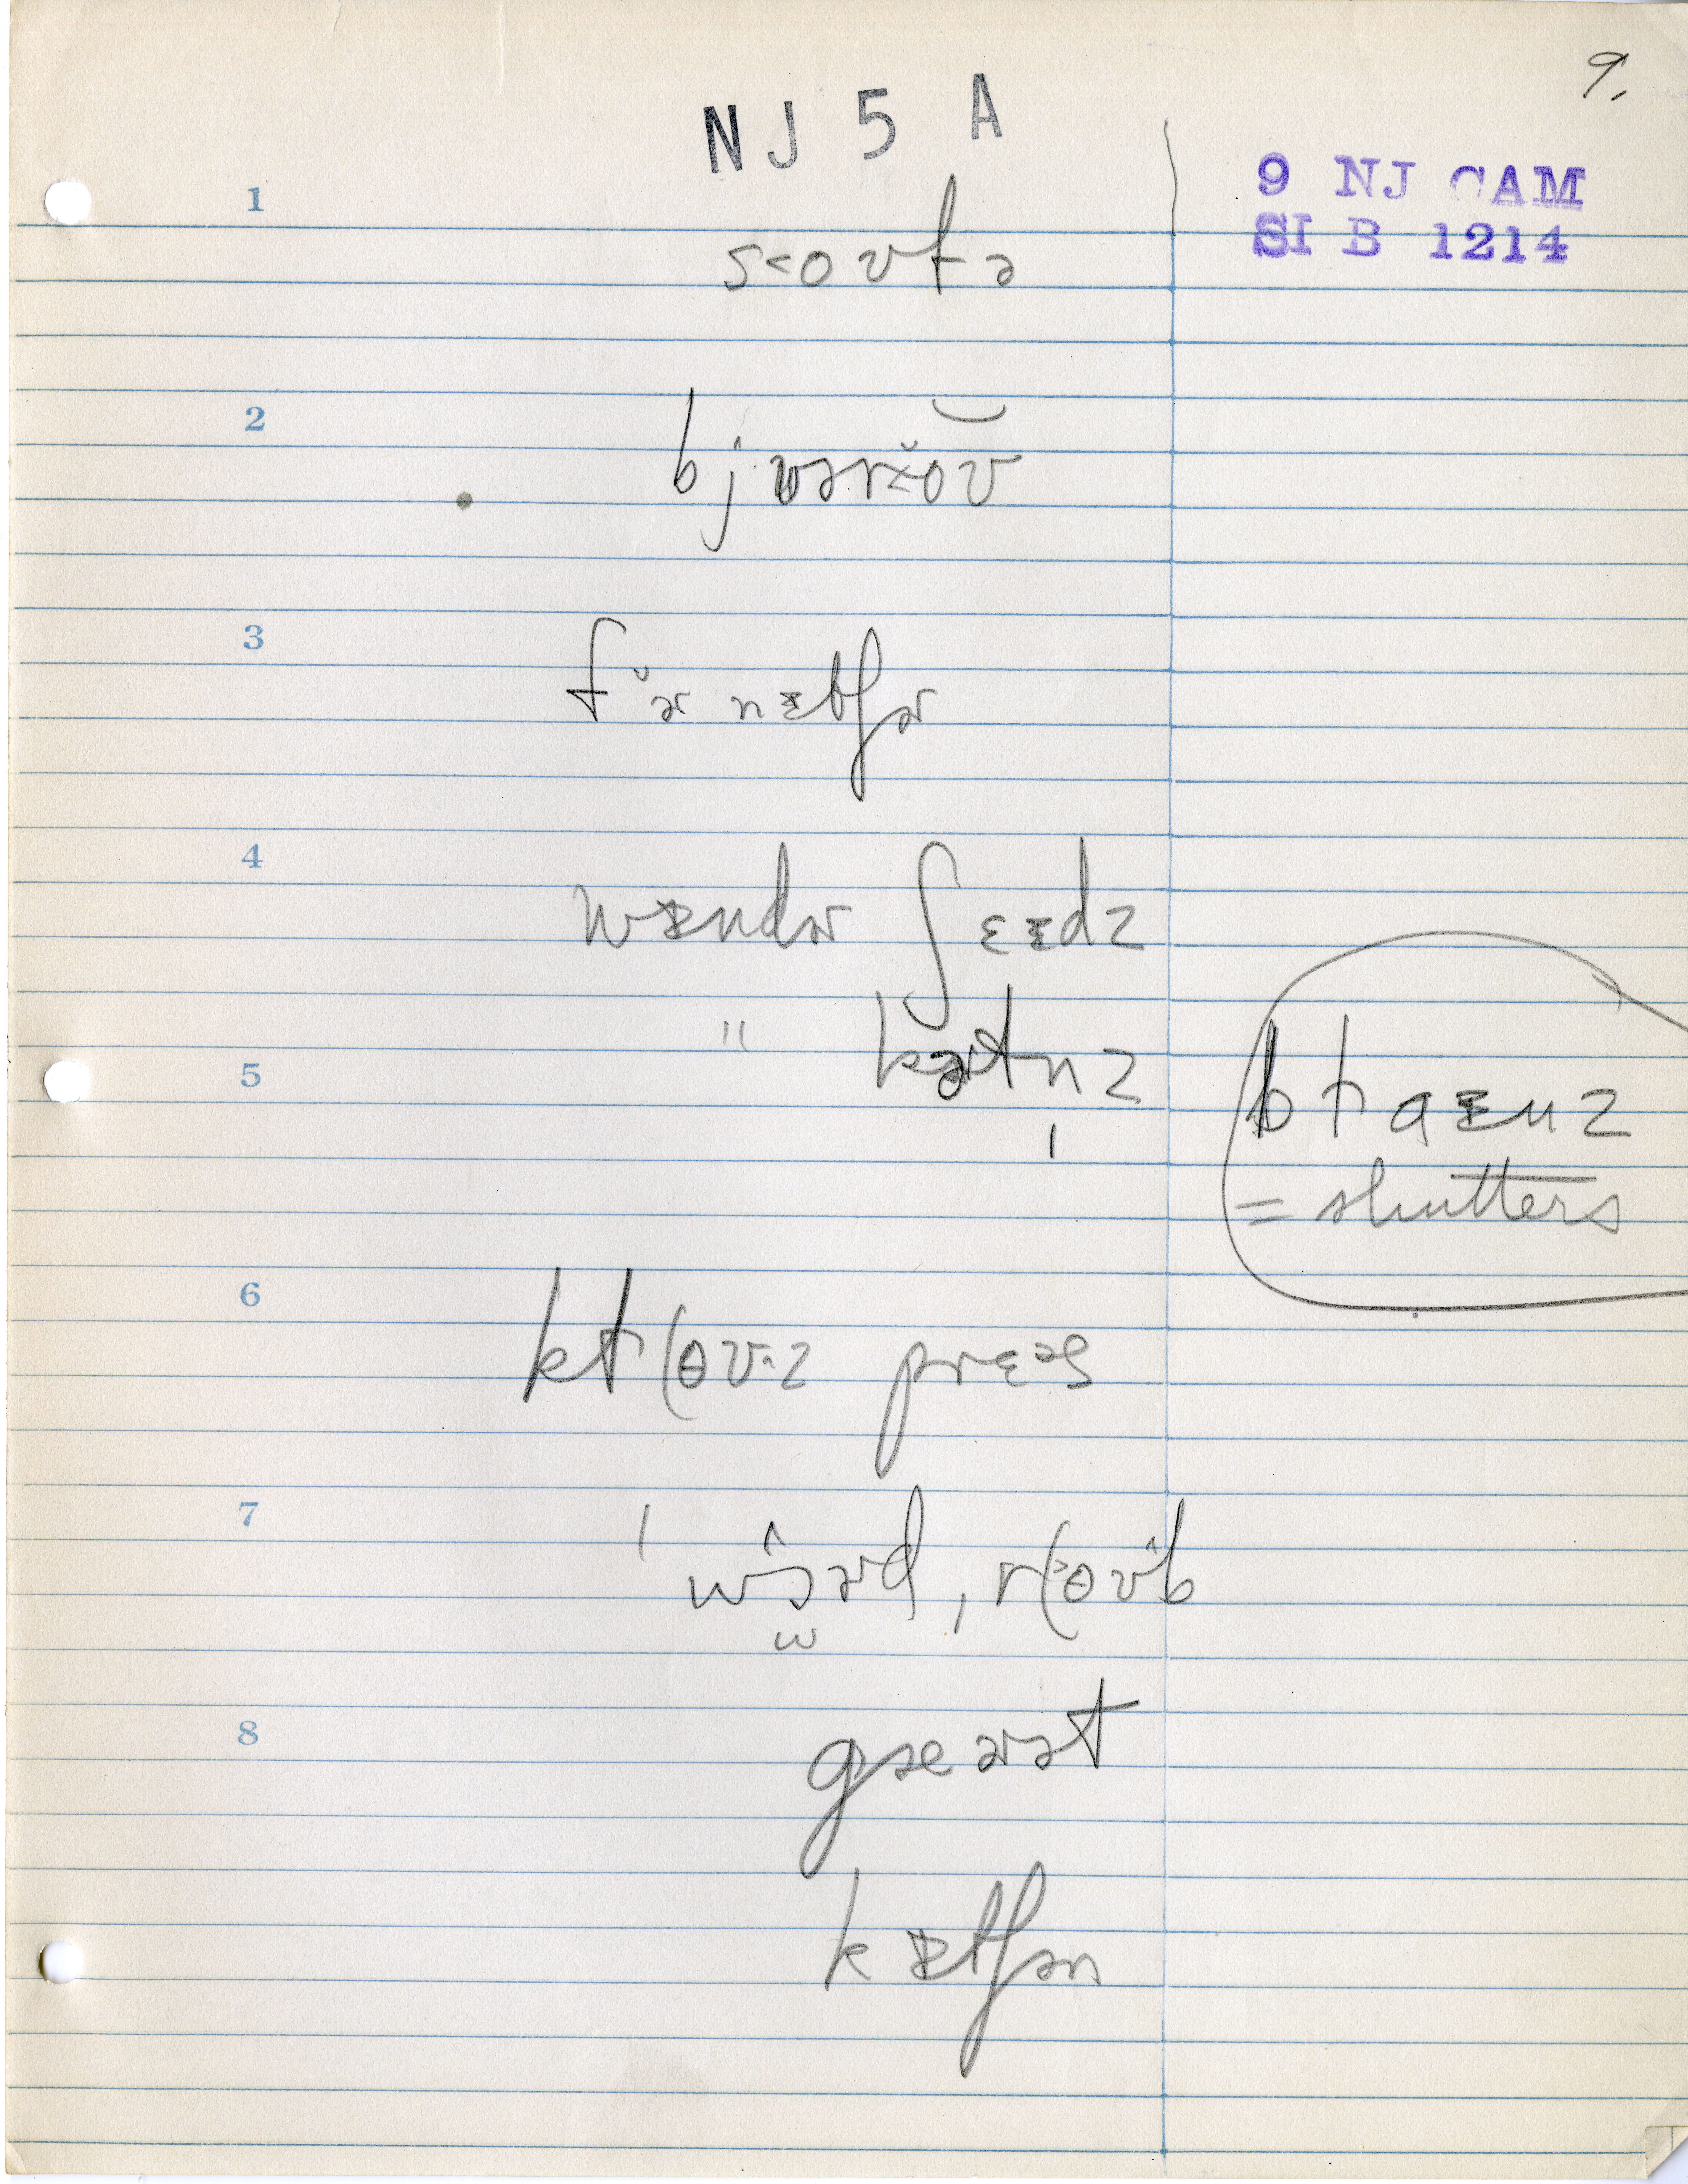 9.
NJ 5 A
9 NJ CAM
SI B 1214
1
s<oʊfə
2
bjʊərˇoʊ
3
fɚnɪtʃɚ
4
wɪndɚ ʃɛɪdz
" kɚtn̩z
5
blaɪnz
= shutters
6
klɵʊ^z prɛəs
7
wɔɚd, rɵʊ^b
8
gæɚət
kɪtʃən